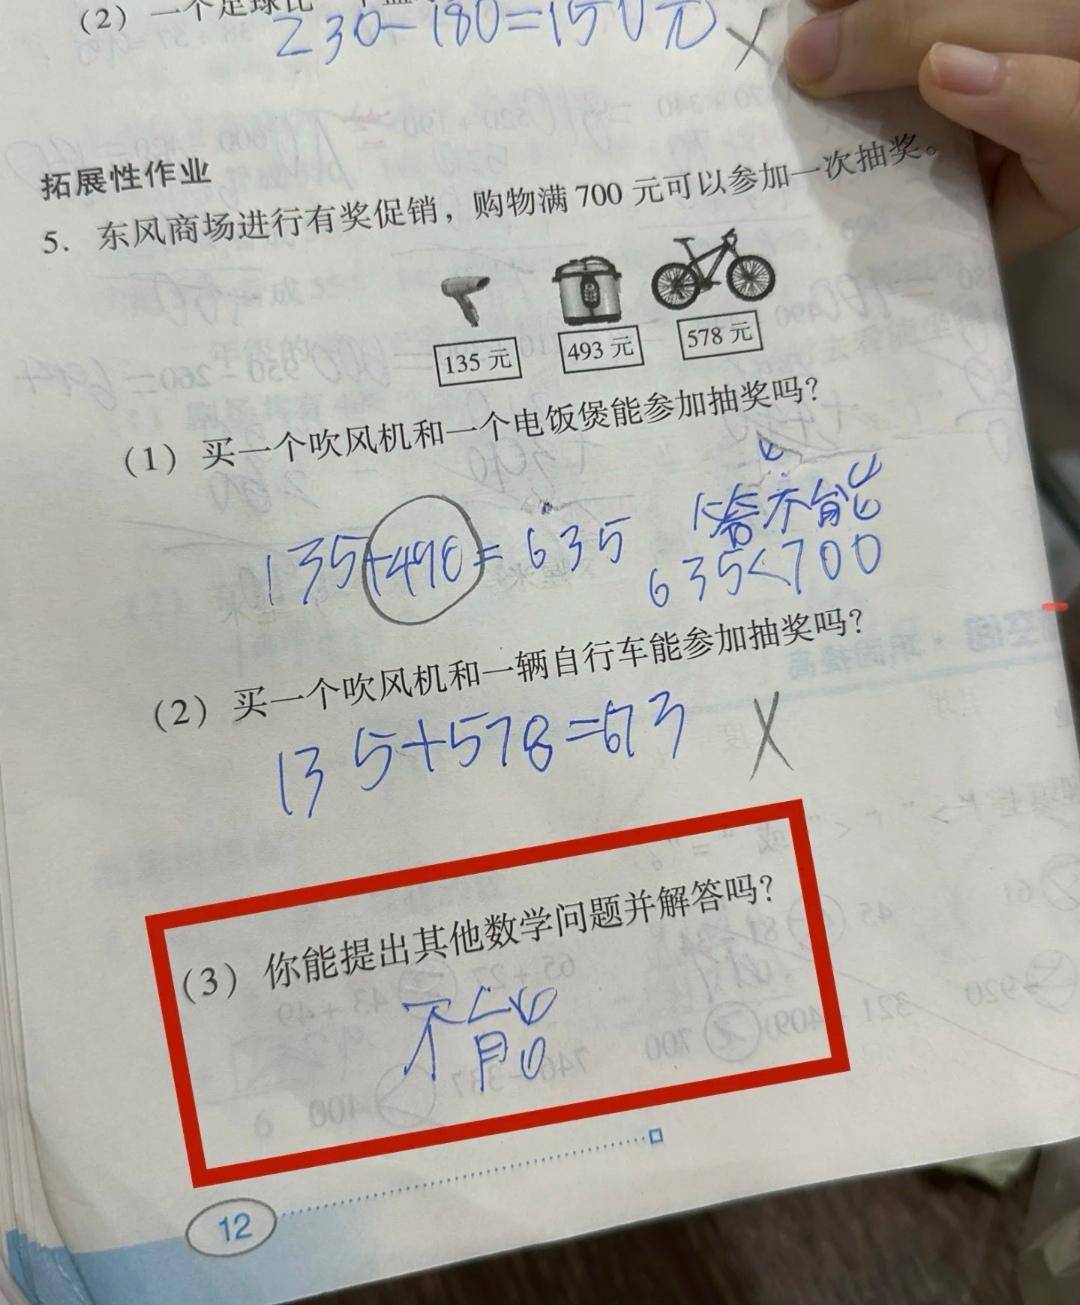 (2) 一个足球比一个
230-180=150元 ×
拓展性作业
5. 东风商场进行有奖促销，购物满 700 元可以参加一次抽奖。
135 元 493 元 578 元
(1) 买一个吹风机和一个电饭煲能参加抽奖吗？
135+490=635 答不能
635<700
(2) 买一个吹风机和一辆自行车能参加抽奖吗？
135+578=673 ×
(3) 你能提出其他数学问题并解答吗？
不能
12